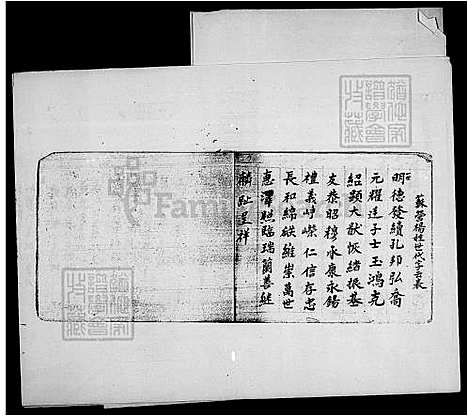 蘇營楊姓世代字云表
明德發績孔卲弘裔
元耀廷子士玉鴻克
紹顯大猷恢緒振基
友恭昭穆永康永錫
禮義崢嶸仁信存忠
長和綿緜維崇萬世
惠澤照臨瑞蘭善繼
麟趾呈祥